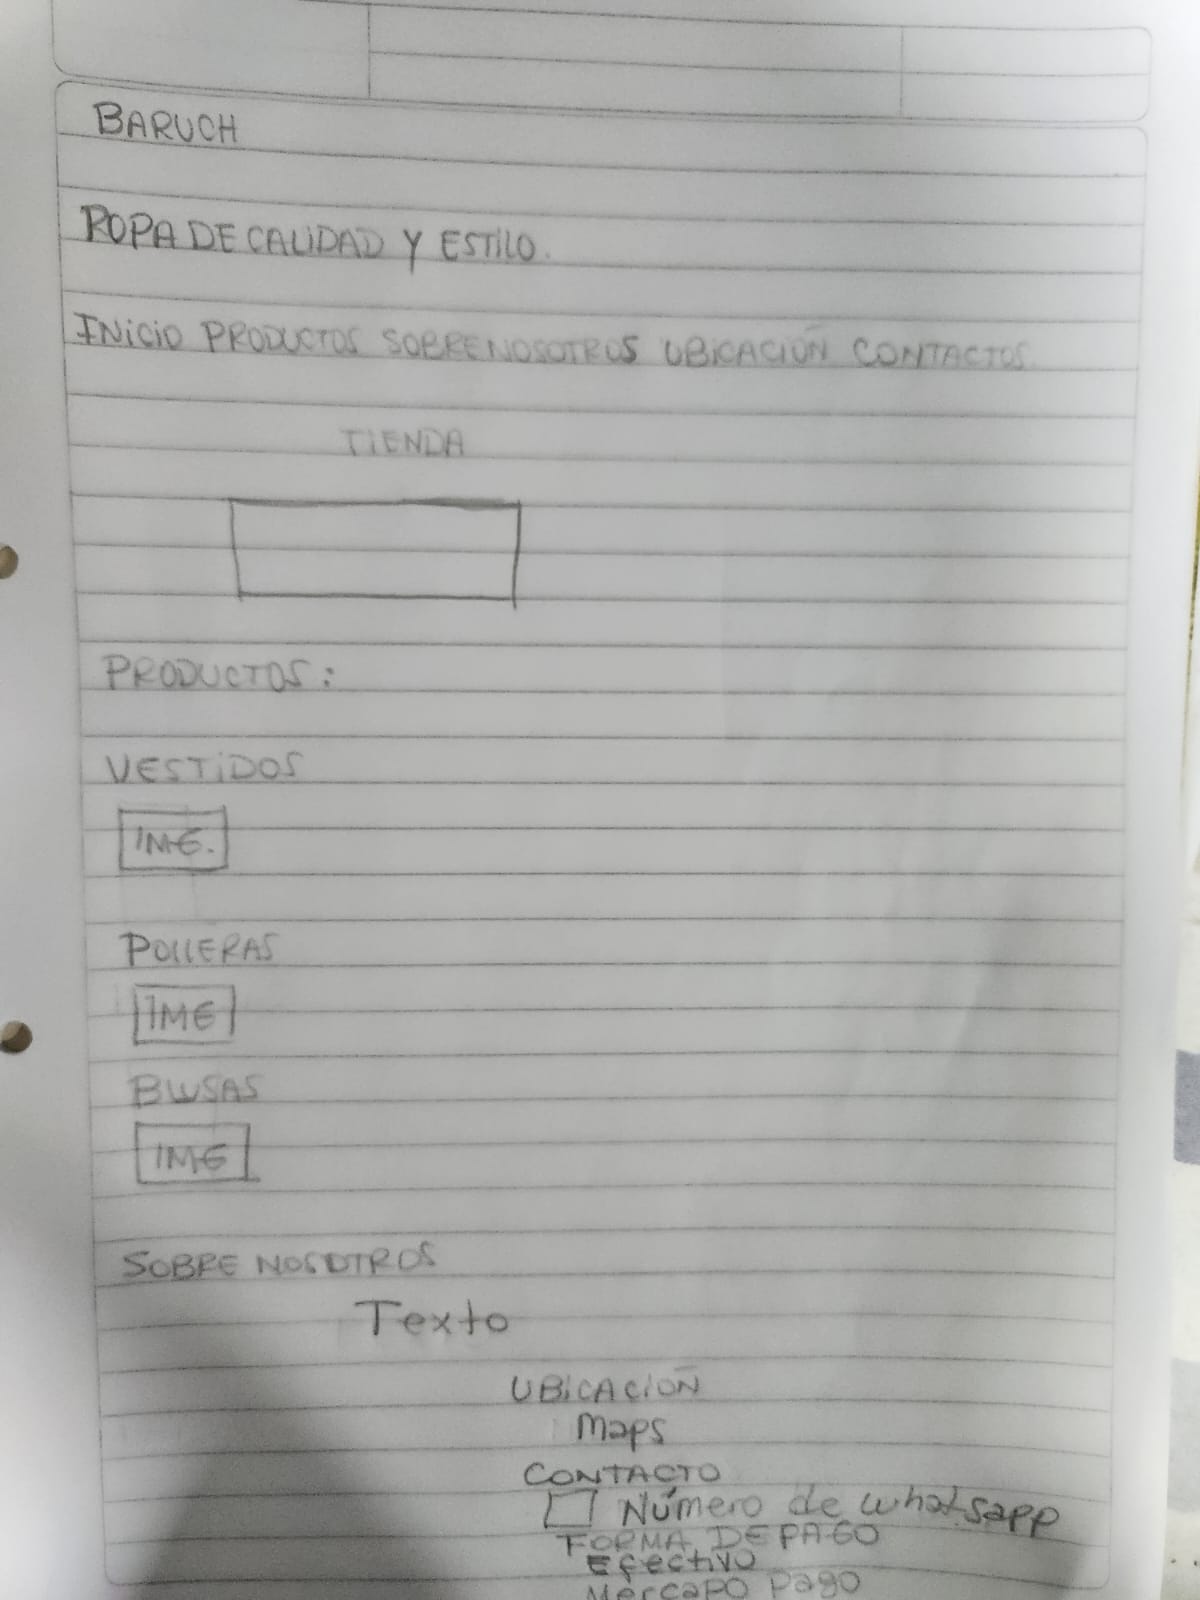 BARUCH
ROPA DE CALIDAD Y ESTILO.
INICIO PRODUCTOS SOBRE NOSOTROS UBICACIÓN CONTACTOS
TIENDA
PRODUCTOS:
VESTIDOS
IMG.
POLLERAS
IMG
BLUSAS
IMG
SOBRE NOSOTROS
Texto
UBICACIÓN
Maps
CONTACTO
Número de whatsapp
FORMA DE PAGO
Efectivo
Mercado Pago